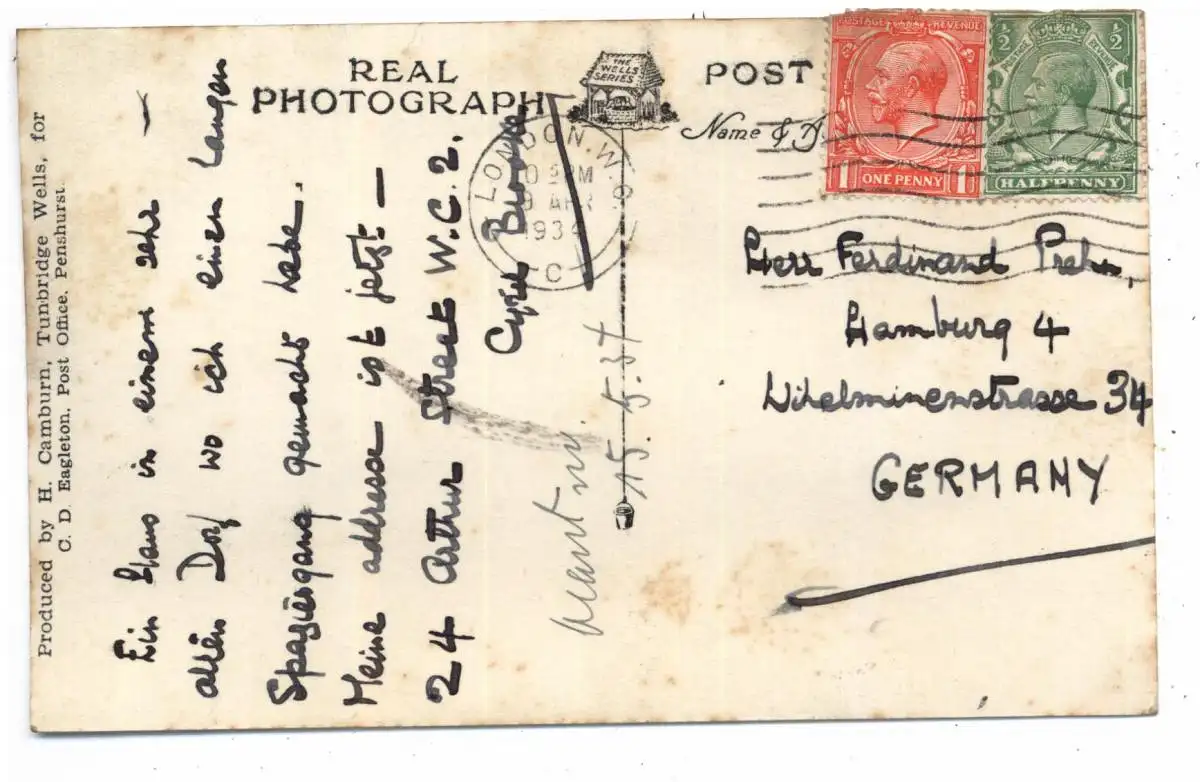 Produced by H. Camburn, Tunbridge Wells, for
C. D. Eagleton, Post Office, Penshurst.
REAL
PHOTOGRAPH
THE
WELLS
SERIES
POST
Name & A
POSTAGE REVENUE
1 ONE PENNY 1
½ ½
POSTAGE REVENUE
HALFPENNY
LONDON. W.
PM
9 APR
193
C
Ein Haus in einem sehr —
alten Dorf wo ich einen langen
Spaziergang gemacht habe.
Meine addresse ist jetzt —
24 Arthur Street W.C.2.
Cyril Brown
15.5.34
Herr Ferdinand Prehn,
Hamburg 4
Wilhelminenstrasse 34
GERMANY